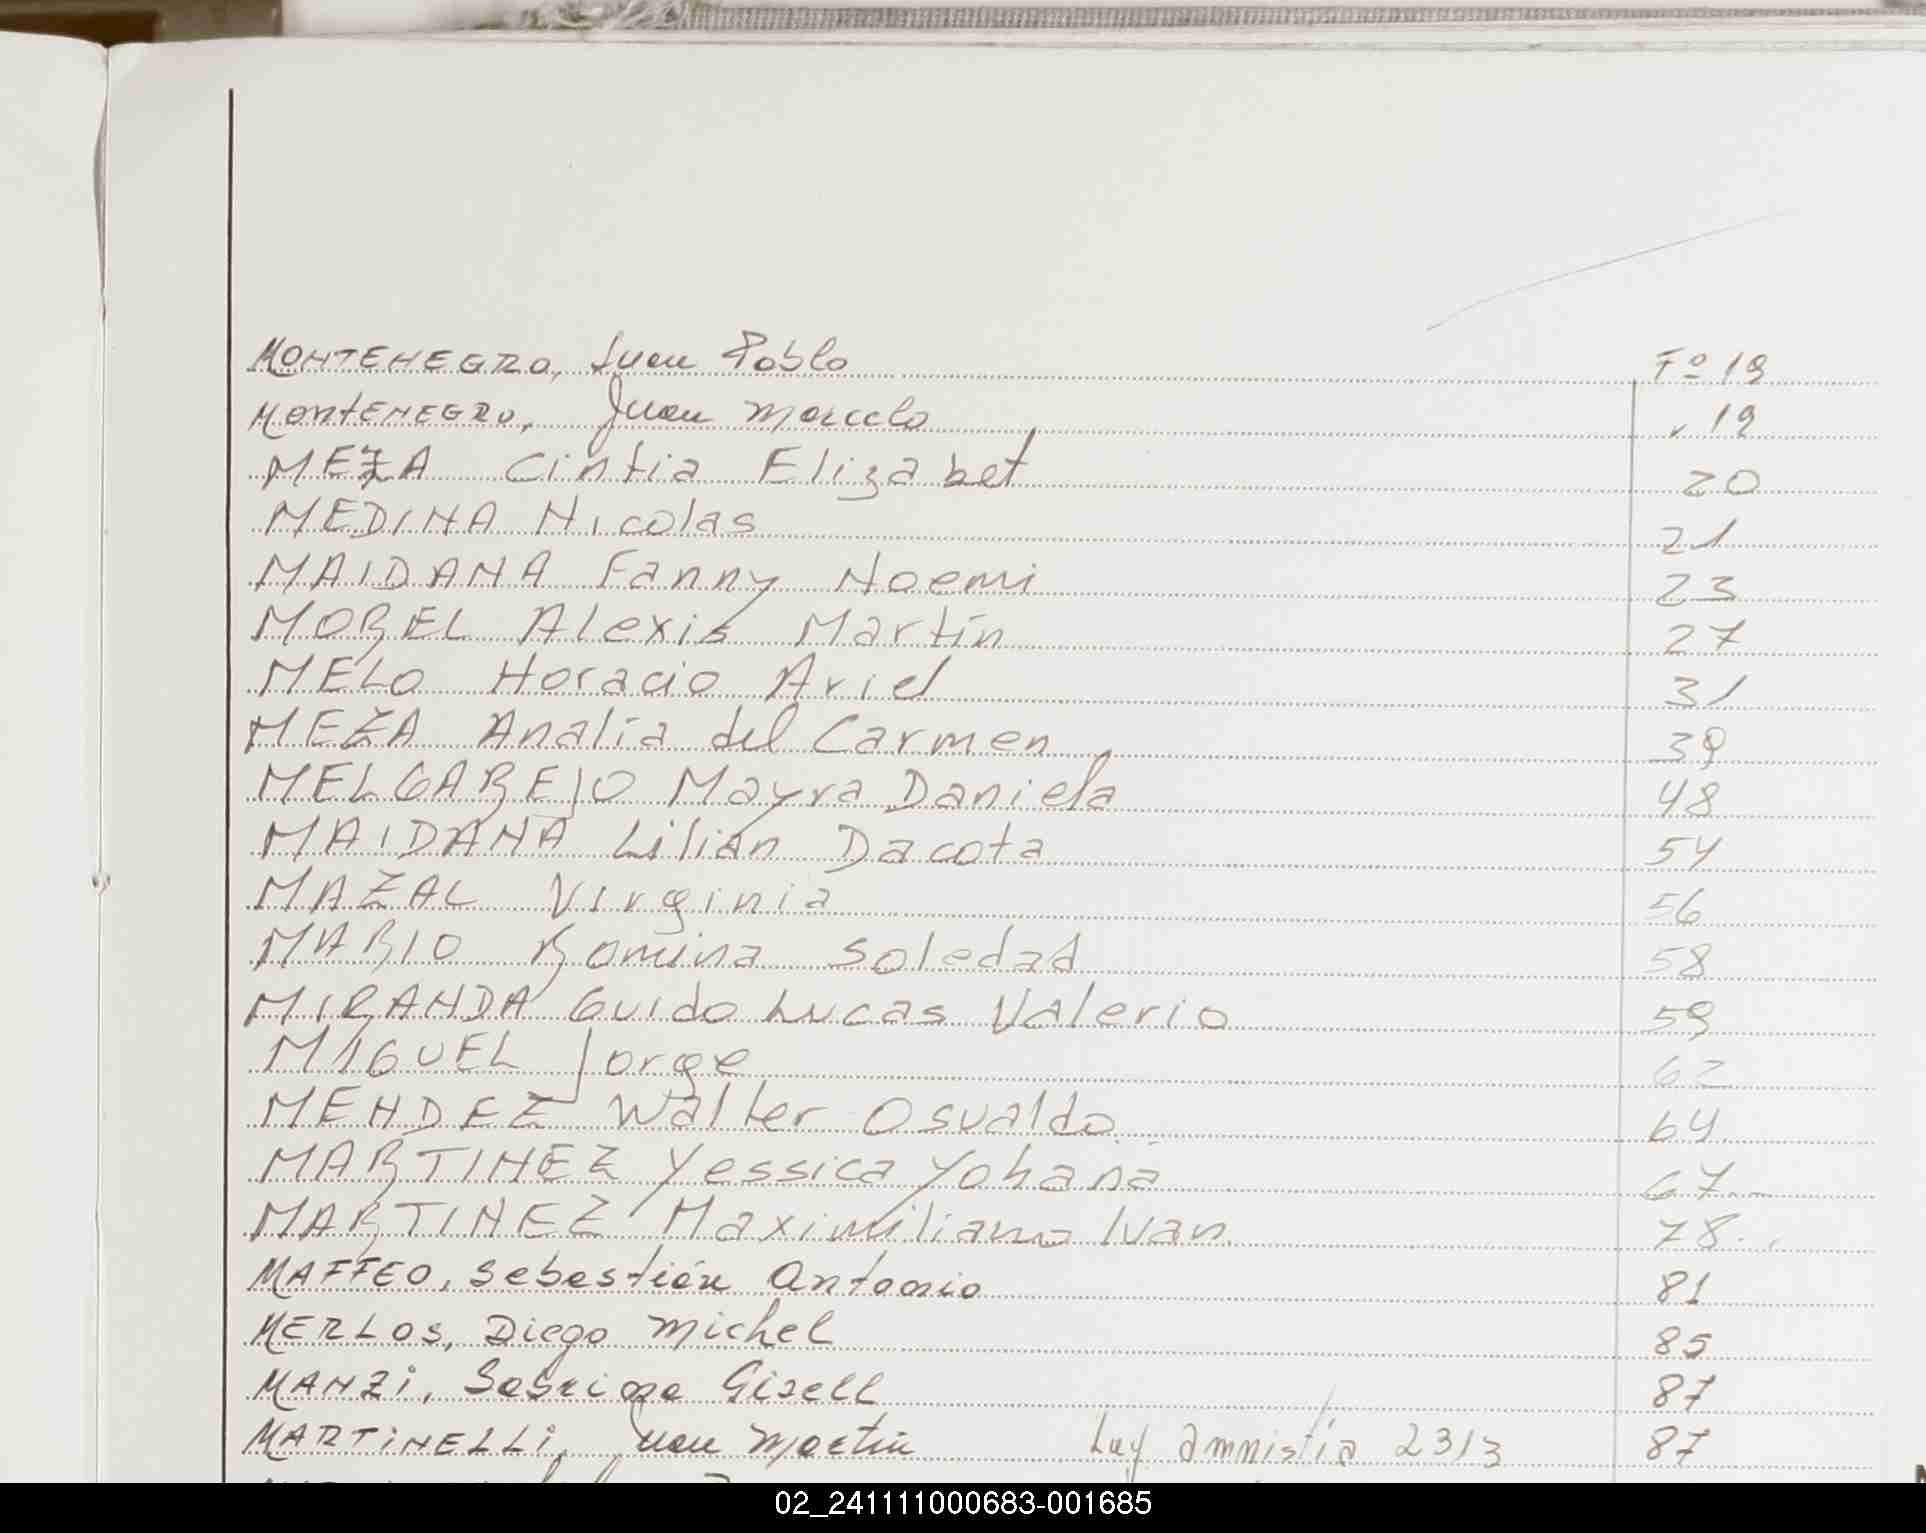 MONTENEGRO, Juan Pablo Fº 19
MONTENEGRO, Juan Marcelo " 19
MEZA Cintia Elizabet 20
MEDINA Nicolas 21
MAIDANA Fanny Noemi 23
MOREL Alexis Martín 27
MELO Horacio Ariel 31
MEZA Analía del Carmen 39
MELGAREJO Mayra Daniela 48
MAIDANA Lilián Dacota 54
MAZAL Virginia 56
MARIO Romina Soledad 58
MIRANDA Guido Lucas Valerio 59
MIGUEL Jorge 62
MENDEZ Walter Osvaldo 64
MARTINEZ Yessica Yohana 67
MARTINEZ Maximiliano Ivan 78
MAFFEO, Sebastián Antonio 81
MERLOS, Diego Michel 85
MANZI, Sabrina Gisell 87
MARTINELLI, Juan Martin Ley amnistía 2313 87
02_241111000683-001685